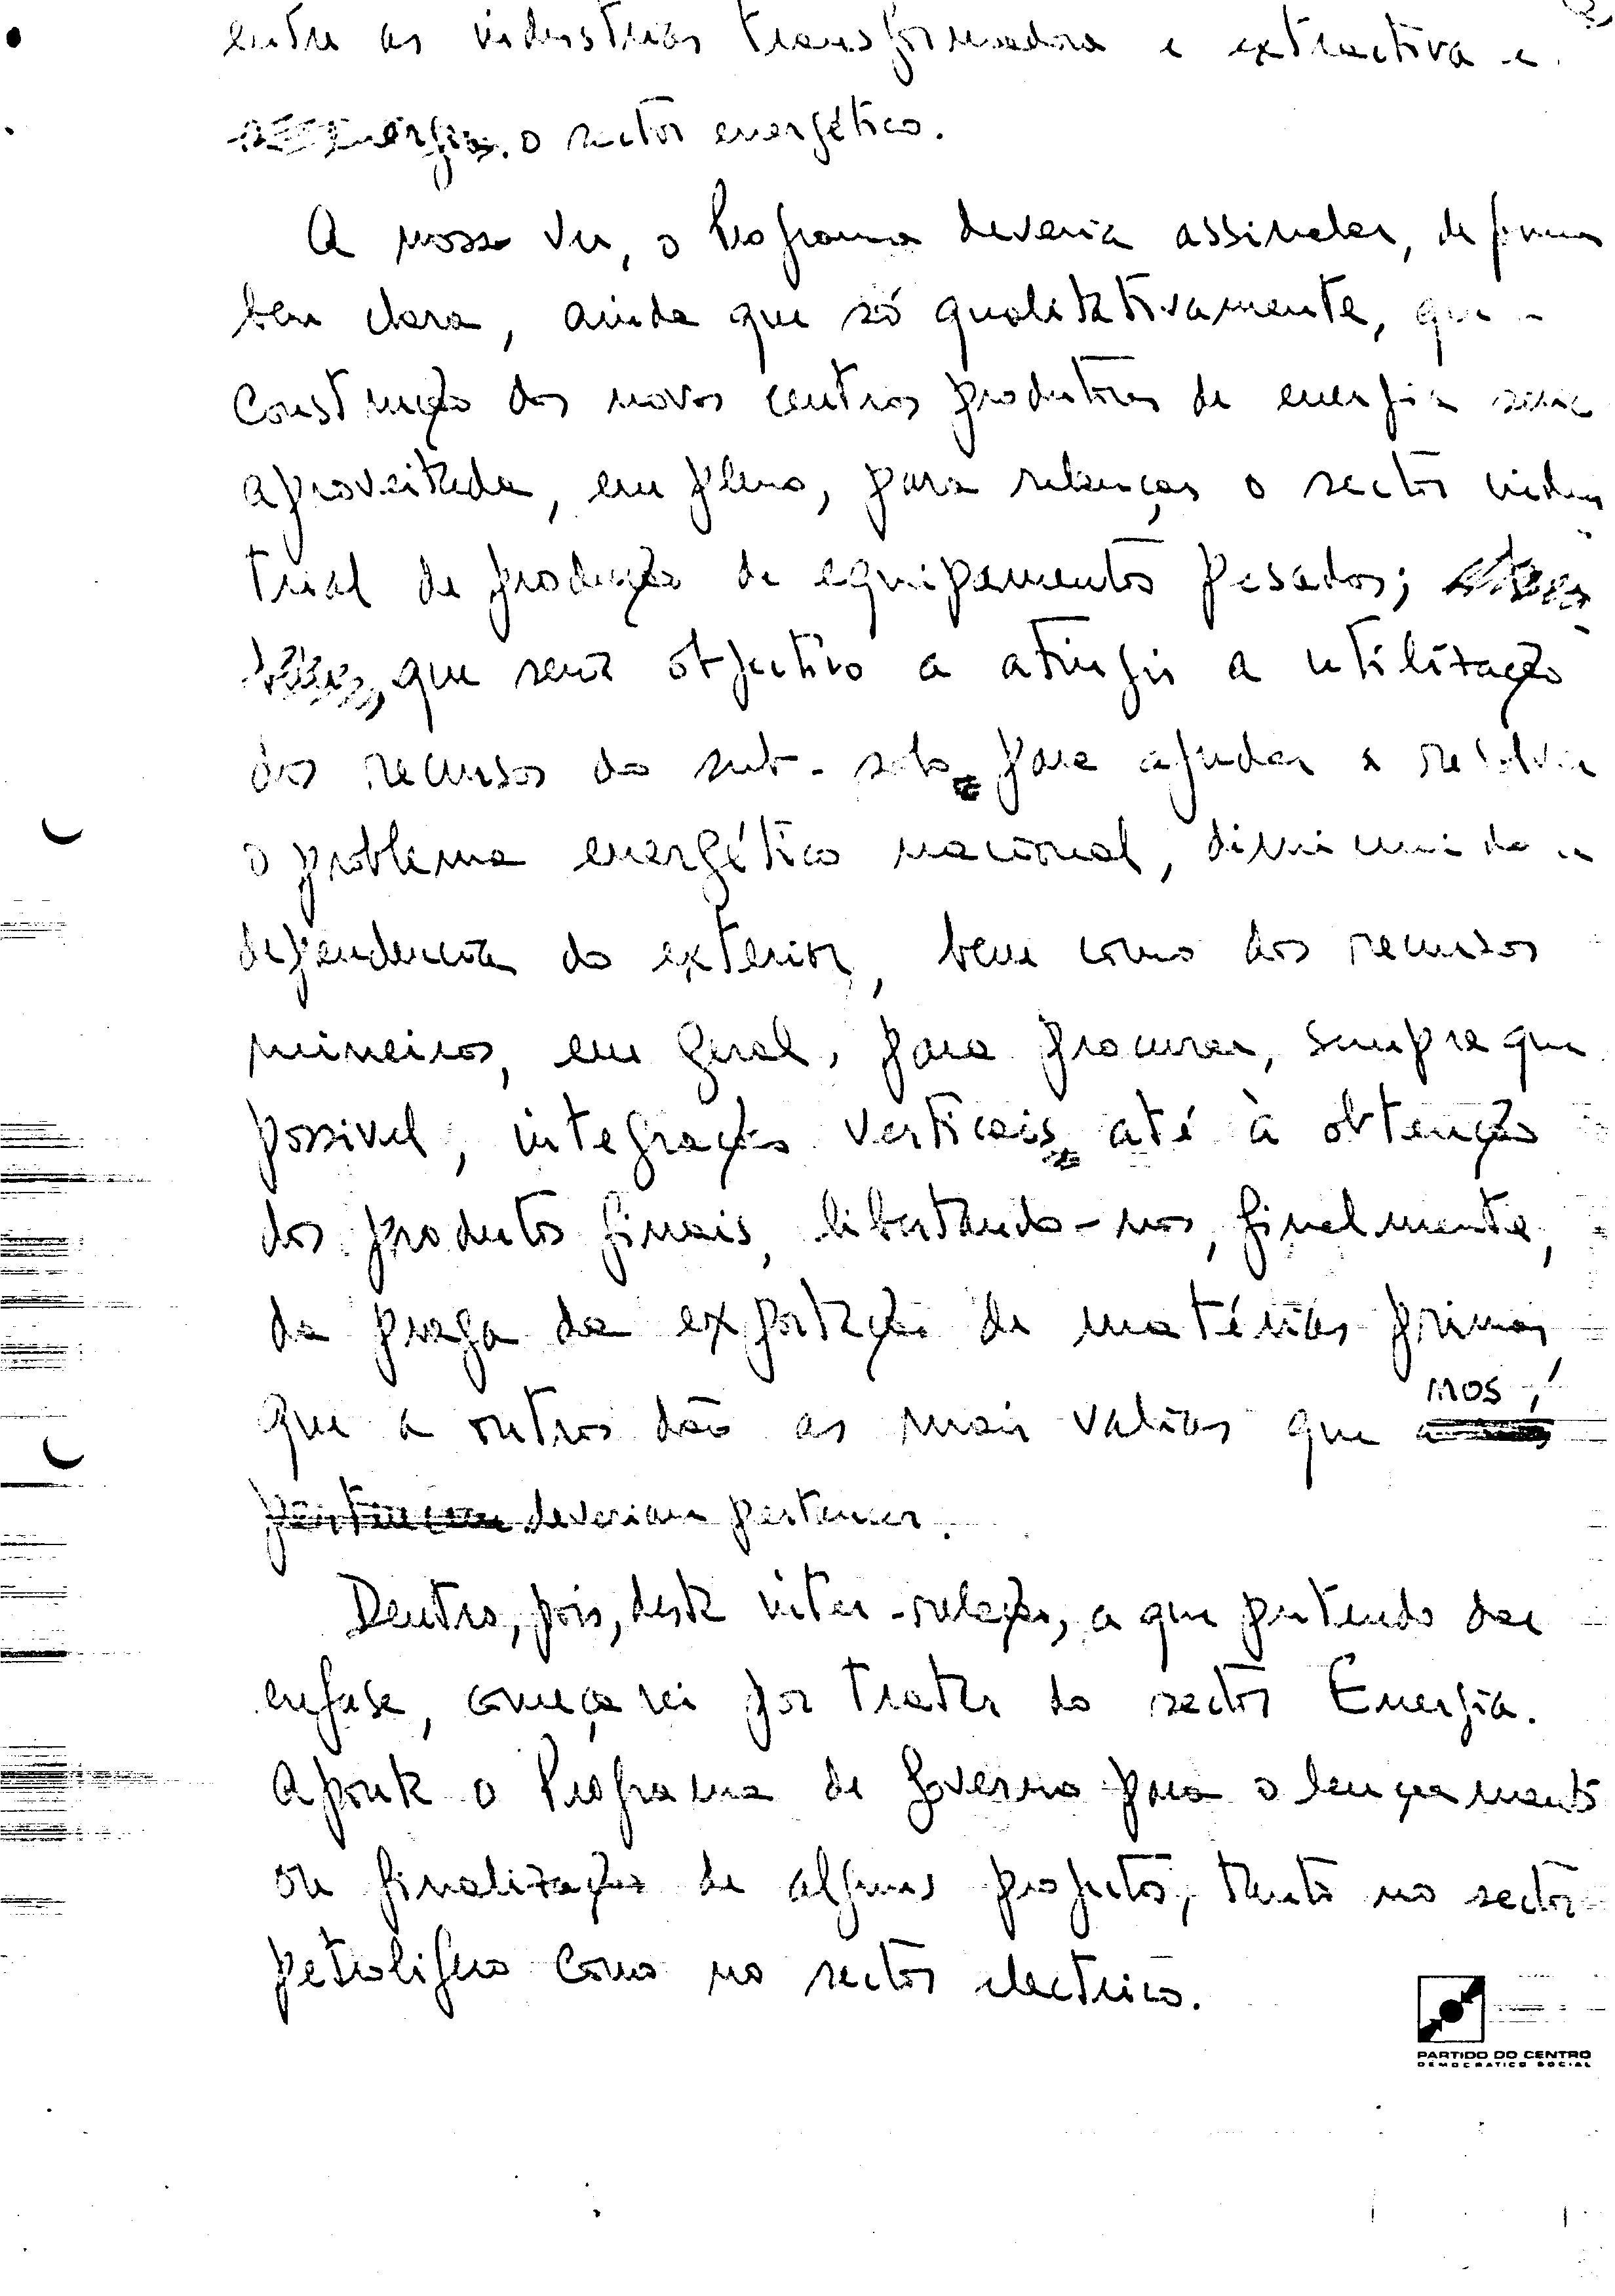 entre as industrias transformadora e extractiva e
o sector energético.
A nosso ver, o Programa deveria assinalar, de forma
bem clara, ainda que só qualitativamente, que a
construção dos novos centros produtores de energia seria
aproveitada, em pleno, para relançar o sector indus
trial de produção de equipamentos pesados;
que será objectivo a atingir a utilização
dos recursos do sub-solo para ajudar a resolver
o problema energético nacional, diminuindo a
dependencia do exterior, bem como dos recursos
mineiros, em geral, para procurar, sempre que
possivel, integração verticais até à obtenção
dos produtos finais, libertando-nos, finalmente,
da praga da exportação de matérias primas
que a outros dão as mais valias que nos
deveriam pertencer.
Dentro, pois, desta inter-relação, a que pretendo dar
enfase, começarei por tratar do sector Energia.
Aponta o Programa de Governo para o lançamento
ou finalização de alguns projectos, tanto no sector
petrolifero como no sector electrico.
PARTIDO DO CENTRO
DEMOCRATICO SOCIAL